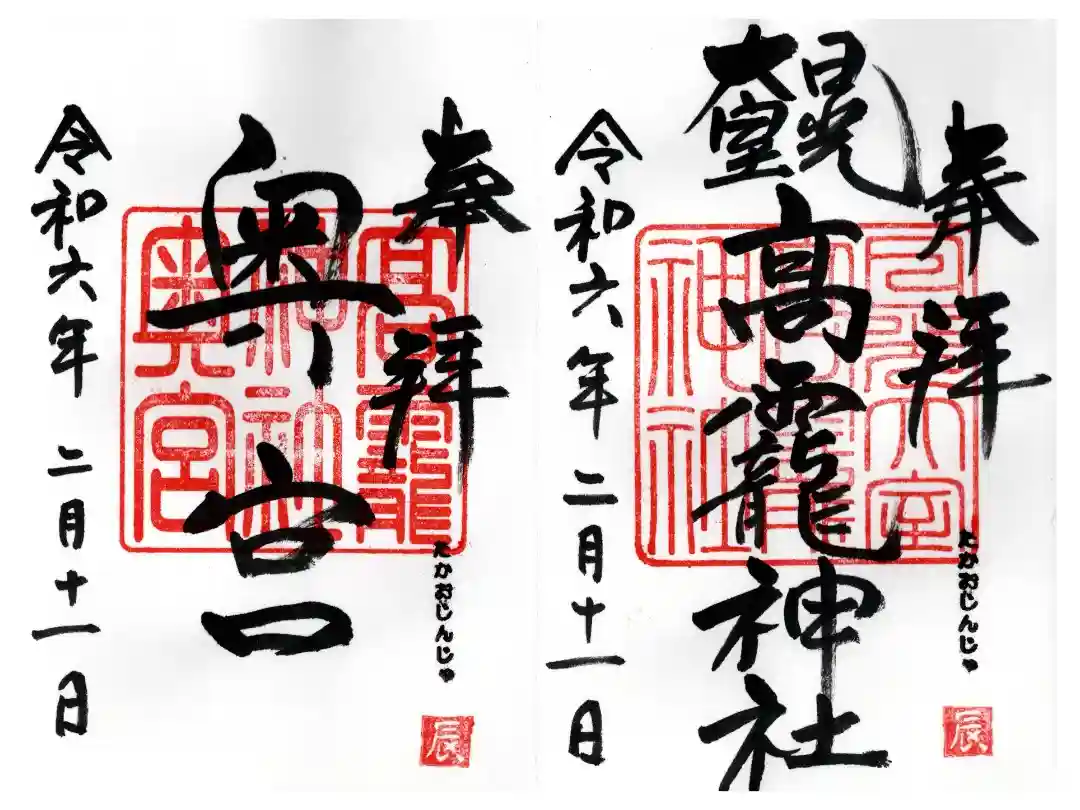 奉拝
日光
大室
高龗神社
令和六年 二月十一日
日光大室
高龗
神社
たかおじんじゃ
辰
奉拝
奥宮
令和六年 二月十一日
高龗
神社
奥宮
たかおじんじゃ
辰